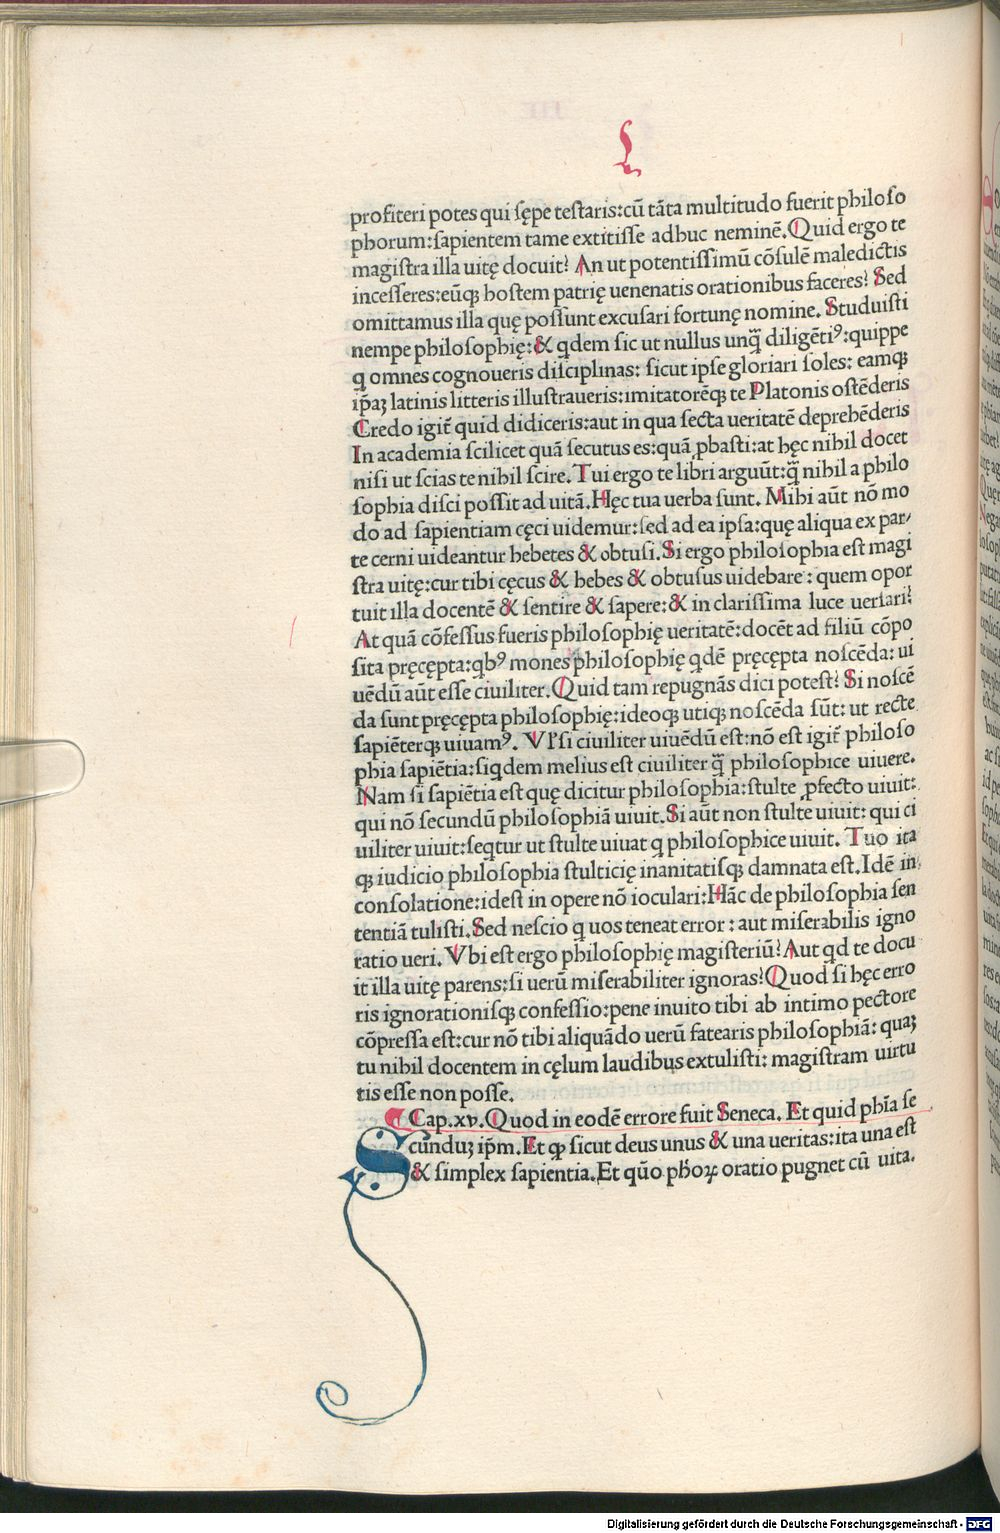 L
profiteri potes qui sępe testaris:cũ tãta multitudo fuerit philoso
phorum:sapientem tame extitisse adhuc neminẽ.Quid ergo te
magistra illa uitę docuit? An ut potentissimũ cõsulẽ maledictis
incesseres:eũqꝫ hostem patrię uenenatis orationibus faceres? Sed
omittamus illa quę possunt excusari fortunę nomine. Studuisti
nempe philosophię:& qdem sic ut nullus unq̃ diligẽtiꝰ:quippe
q omnes cognoueris disciplinas: sicut ipse gloriari soles: eamqꝫ
ip̃aꝫ latinis litteris illustraueris:imitatorẽqꝫ te Platonis ostẽderis
Credo igit̃ quid didiceris:aut in qua secta ueritatẽ deprehẽderis
In academia scilicet quã secutus es:quã ꝓbasti:at hęc nihil docet
nisi ut scias te nihil scire. Tui ergo te libri arguũt:q̃ nihil a philo
sophia disci possit ad uitã.Hęc tua uerba sunt. Mihi aũt nõ mo
do ad sapientiam cęci uidemur:sed ad ea ipsa:quę aliqua ex par⸗
te cerni uideantur hebetes & obtusi.Si ergo philosophia est magi
stra uitę:cur tibi cęcus & hebes & obtusus uidebare: quem opor
tuit illa docentẽ & sentire & sapere:& in clarissima luce uersari?
At quã cõfessus fueris philosophię ueritatẽ:docẽt ad filiũ cõpo
sita pręcępta:qbꝰ mones philosophię qdẽ pręcępta noscẽda: ui
uẽdũ aũt esse ciuiliter.Quid tam repugnãs dici potest? Si noscẽ
da sunt pręcępta philosophię:ideoqꝫ utiqꝫ noscẽda sũt: ut recte
sapiẽterqꝫ uiuamꝰ. Vl si ciuiliter uiuẽdũ est:nõ est igit̃ philoso
phia sapiẽtia:siqdem melius est ciuiliter q̃ philosophice uiuere.
Nam si sapiẽtia est quę dicitur philosophia:stulte ꝓfecto uiuit:
qui nõ secundũ philosophiã uiuit.Si aũt non stulte uiuit: qui ci
uiliter uiuit:seqtur ut stulte uiuat q philosophice uiuit. Tuo ita
qꝫ iudicio philosophia stulticię inanitatisqꝫ damnata est.Idẽ in
consolatione:idest in opere nõ ioculari:Hãc de philosophia sen
tentiã tulisti.Sed nescio q uos teneat error: aut miserabilis igno
ratio ueri. Vbi est ergo philosophię magisteriũ? Aut qd te docu
it illa uitę parens:si uerũ miserabiliter ignoras?Quod si hęc erro
ris ignorationisqꝫ confessio:pene inuito tibi ab intimo pectore
cõpressa est:cur nõ tibi aliquãdo uerũ fatearis philosophiã: quaꝫ
tu nihil docentem in cęlum laudibus extulisti: magistram uirtu
tis esse non posse.
¶ Cap.xv.Quod in eodẽ errore fuit Seneca. Et quid phĩa se
Scunduꝫ ip̃m.Et ꝙ sicut deus unus & una ueritas:ita una est
& simplex sapientia.Et qũo phoꝝ oratio pugnet cũ uita.
Digitalisierung gefördert durch die Deutsche Forschungsgemeinschaft - DFG